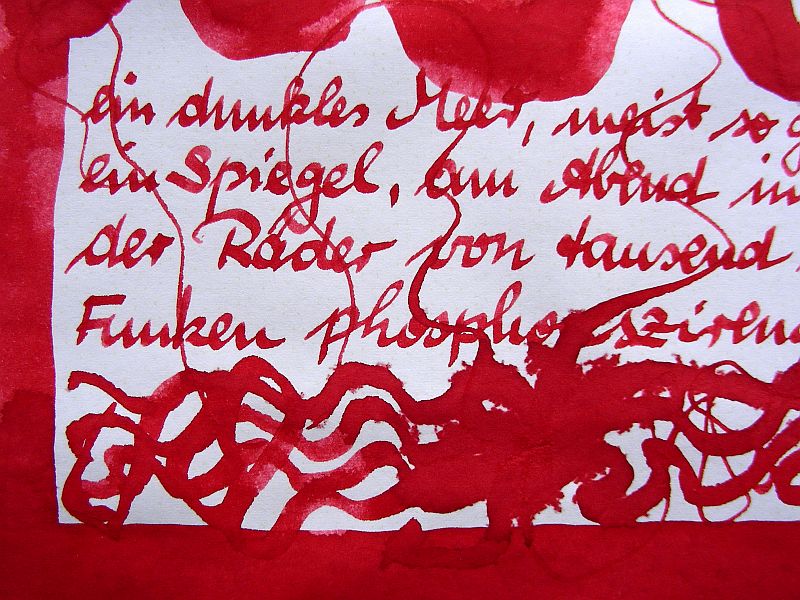 ein dunkles Meer, meist so g
ein Spiegel, am Abend in
der Räder von tausend
Funken phosphoreszirend